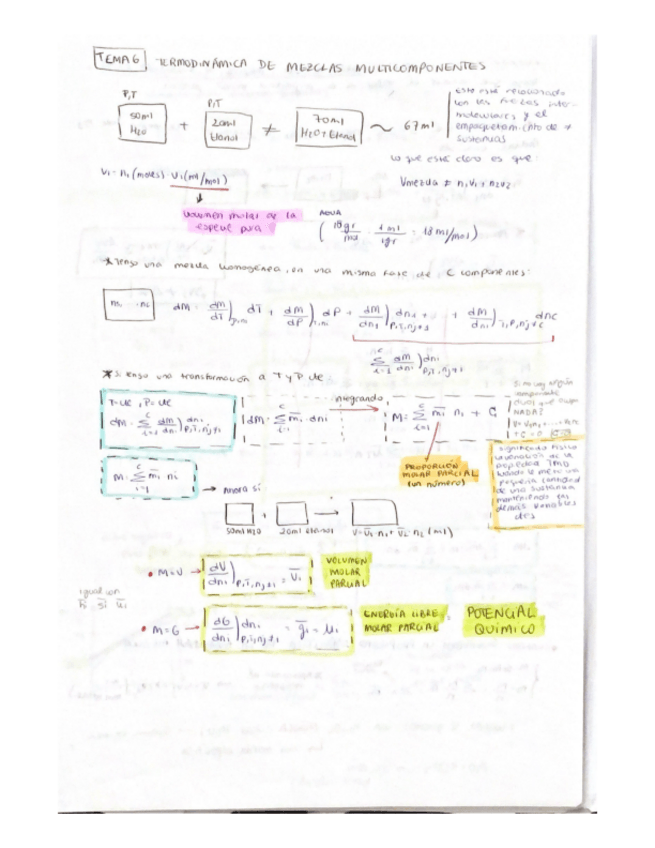 TEMA 6 TERMODINÁMICA DE MEZCLAS MULTICOMPONENTES
P,T
P,T
50ml H2O + 20ml Etanol ≠ 70ml H2O+Etanol ~ 67ml
Esto está relacionado
con las fuerzas inter-
moleculares y el
empaquetamiento de
sustancias
Lo que está claro es que:
Vmezcla ≠ n1v1 + n2v2
Vi = ni(moles) vi(ml/mol)
volumen molar de la
especie pura
AGUA
(18gr/mol · 1ml/1gr = 18 ml/mol)
*Tengo una mezcla homogénea, en una misma fase, de C componentes:
n1 ... nc
dM = dM/dT)P,ni dT + dM/dP)T,ni dP + dM/dn1)P,T,nj≠1 dn1 + + dM/dnc)T,P,nj≠c dnc
∑ i=1 c dM/dni)P,T,nj≠i dni
*Si tengo una transformación a T y P cte:
T=cte, P=cte
dM = ∑ i=1 c dM/dni)P,T,nj≠i dni
dM = ∑ i=1 c m̄i · dni
integrando
M = ∑ i=1 c m̄i ni + C
Si no hay ningún
componente
NADA?
M = ∑ i=1 c m̄i ni
PROPORCIÓN
MOLAR PARCIAL
(un número)
significado físico
la variación de la
propiedad TMD
cuando le meto una
pequeña cantidad
de una sustancia
manteniendo las
demás variables
ctes
Ahora sí
50ml H2O + 20ml Etanol → V = V̄1·n1 + V̄2·n2 (ml)
• M=V → dV/dni)P,T,nj≠i = V̄i
VOLUMEN
MOLAR
PARCIAL
igual con
h̄i s̄i ūi
• M=G → dG/dni)P,T,nj≠i dni = ḡi = μi
ENERGÍA LIBRE
MOLAR PARCIAL =
POTENCIAL
QUÍMICO